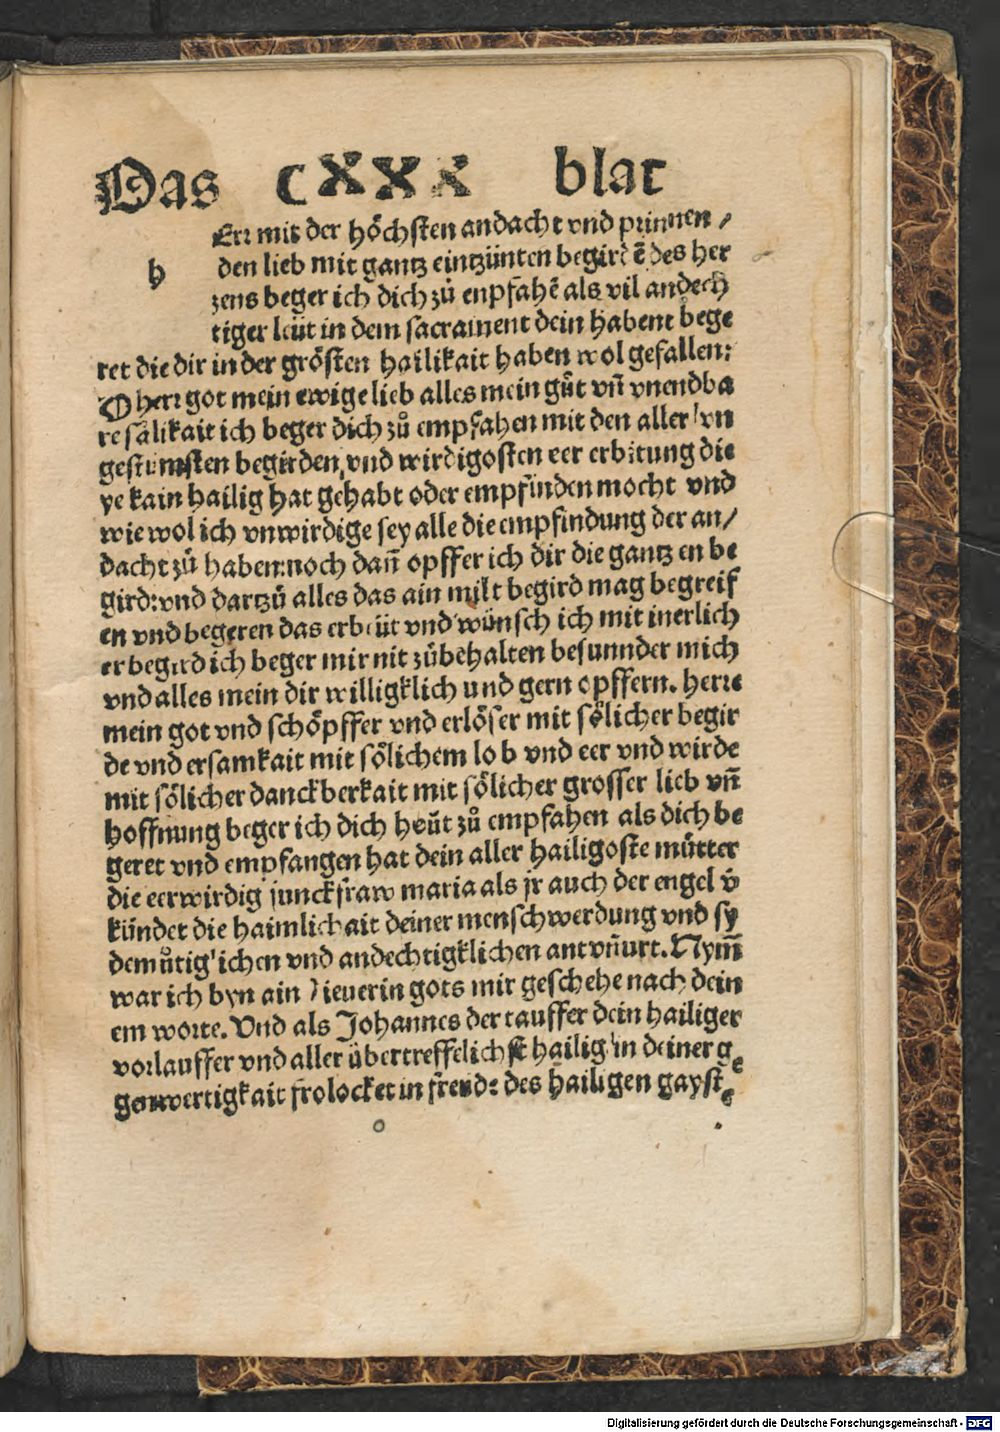 Das CXXX blat
h
Err mit der höchsten andacht vnd prinnen /
den lieb mit gantz eintzünten begird ē des her
zens beger ich dich zů enpfahē als vil andech
tiger leüt in dem sacrament dein habent bege
ret die dir in der grösten hailikait haben wol gefallen:
O herr got mein ewige lieb alles mein gůt vñ vnendba
re sälikait ich beger dich zů empfahen mit den aller vn
gestümsten begirden, vnd wirdigosten eer erbitung die
ye kain hailig hat gehabt oder empfinden mocht vnd
wie wol ich vnwirdige sey alle die empfindung der an/
dacht zů haben: noch dañ opffer ich dir die gantz en be
gird: vnd dartzů alles das ain milt begird mag begreif
en vnd begeren das erbeüt vnd wünsch ich mit inerlich
er begird ich beger mir nit zůbehalten besunnder mich
vnd alles mein dir willigklich und gern opffern. herre
mein got vnd schöpffer vnd erlöser mit sölicher begir
de vnd ersamkait mit sölichem lob vnd eer vnd wirde
mit sölicher danckberkait mit sölicher grosser lieb vñ
hoffnung beger ich dich heüt zů empfahen als dich be
geret vnd empfangen hat dein aller hailigoste můtter
die eerwirdig junckfraw maria als jr auch der engel v̄
kündet die haimlichait deiner menschwerdung vnd sy
demůtig'ichen vnd andechtigklichen antvñurt. Nym̄
war ich byn ain dieuerin gots mir geschehe nach dein
em worte. Vnd als Johannes der tauffer dein hailiger
vorlauffer vnd aller übertreffelichst hailig in deiner ge
genwertigkait frolocket in freude des hailigen gayste
o .
Digitalisierung gefördert durch die Deutsche Forschungsgemeinschaft - DFG